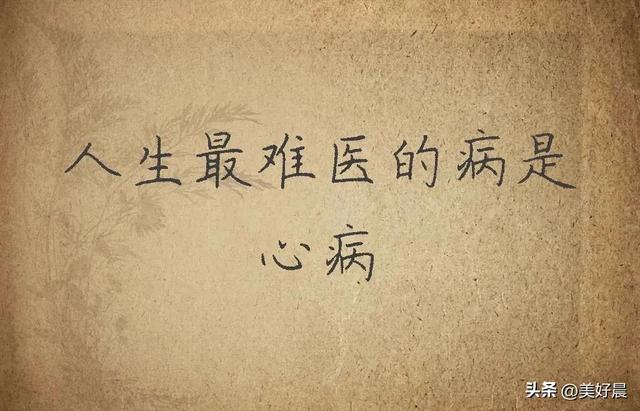 人生最难医的病是
心病
头条 @美好晨